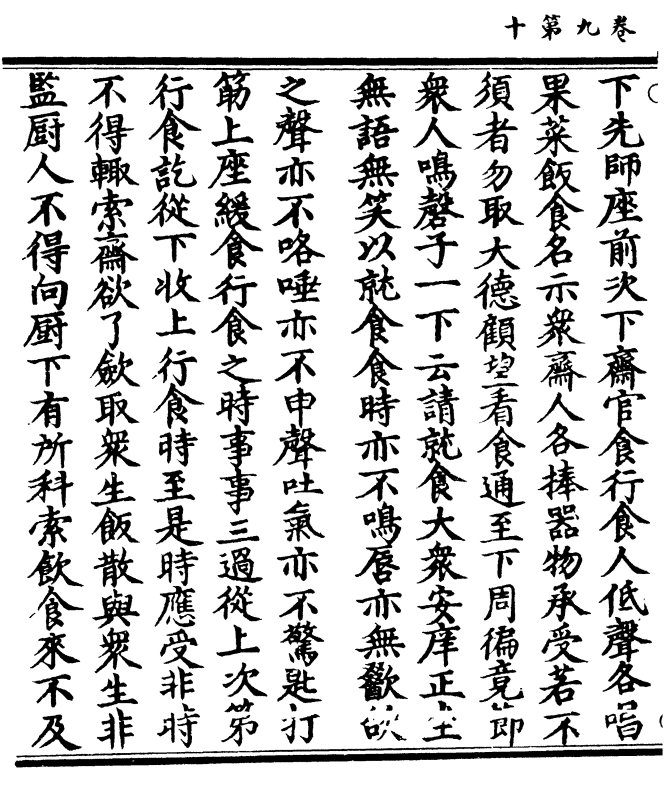 卷九第十
下先師座前次下齋官食行食人低聲各唱
果菜飯食名示衆齋人各捧器物承受若不
須者勿取大德顧望看食通至下周徧竟節
衆人鳴磬子一下云請就食大衆安庠正坐
無語無笑以就食食時亦不鳴唇亦無歠
之聲亦不咯唾亦不申聲吐氣亦不驚匙打
筯上座緩食行食之時事事三過從上次第
行食訖從下收上行食時至是時應受非時
不得輙索齋欲了歛取衆生飯散與衆生非
監厨人不得向厨下有所科索飲食來不及